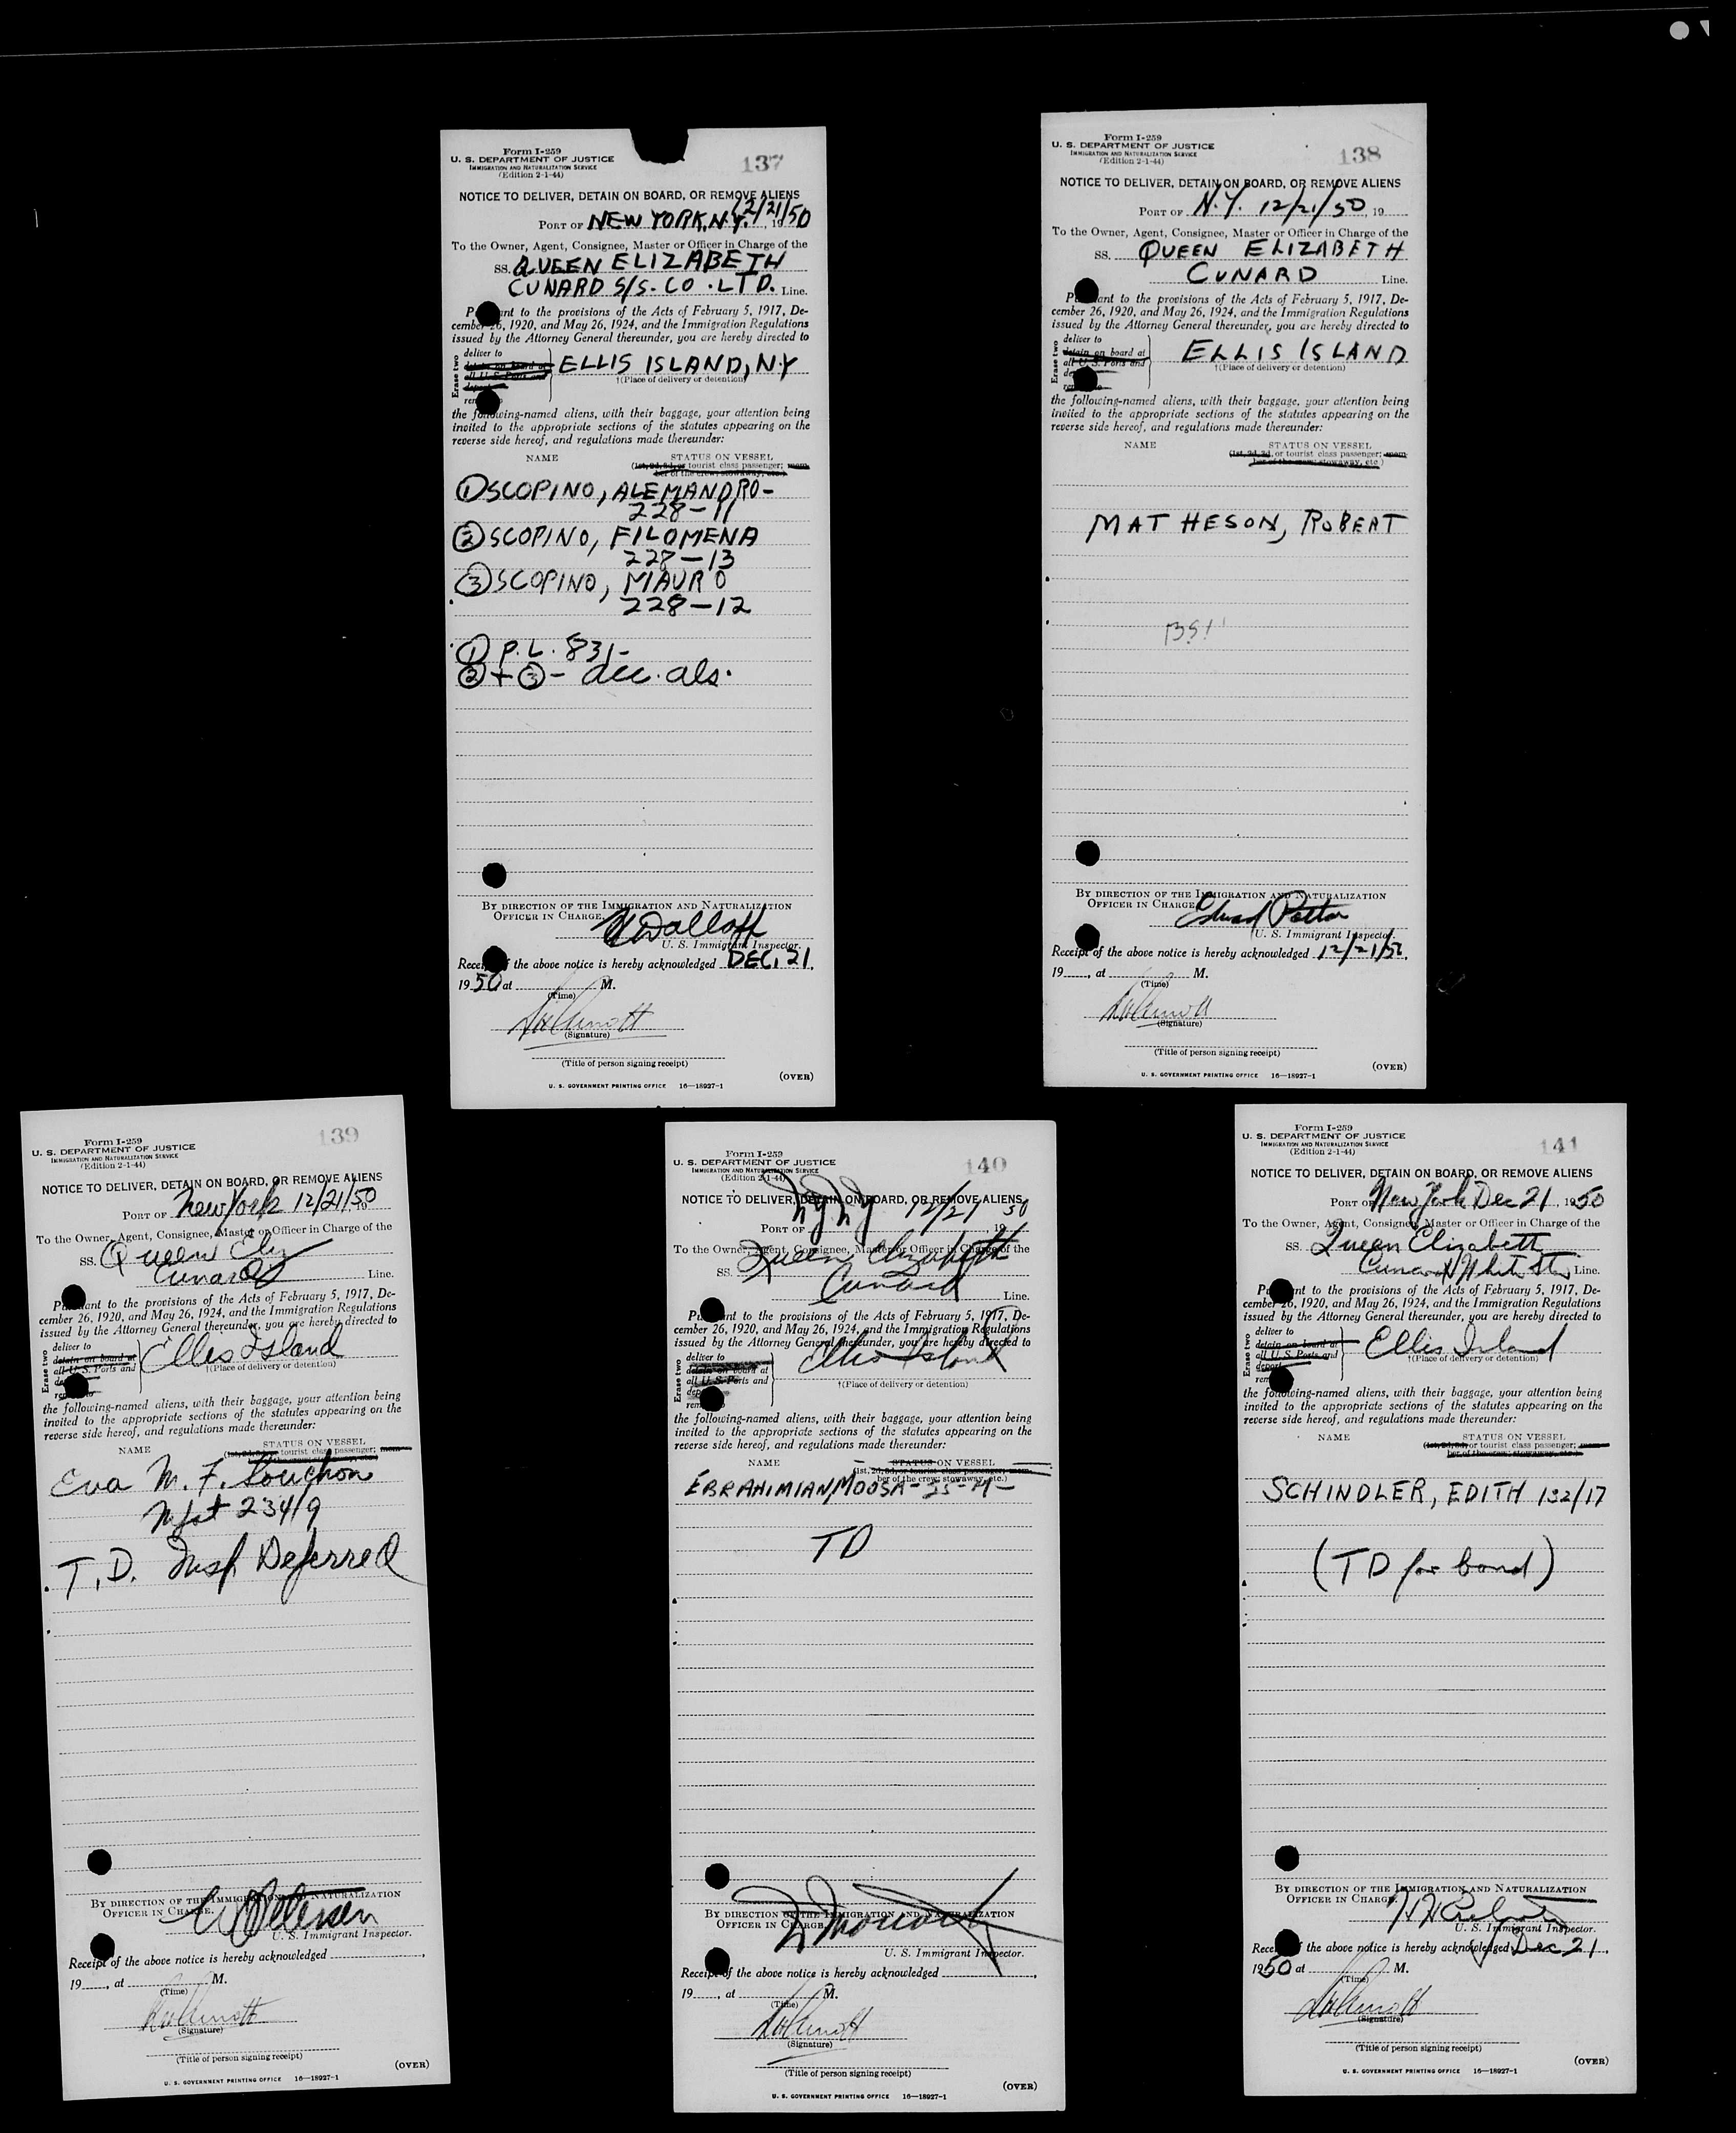 Form I-259
U. S. DEPARTMENT OF JUSTICE
IMMIGRATION AND NATURALIZATION SERVICE
(Edition 2-1-44)
137
NOTICE TO DELIVER, DETAIN ON BOARD, OR REMOVE ALIENS
PORT OF NEW YORK, N.Y. 12/21/50, 1950
To the Owner, Agent, Consignee, Master or Officer in Charge of the
SS. QUEEN ELIZABETH
CUNARD S/S. CO. LTD. Line.
P ant to the provisions of the Acts of February 5, 1917, De-
cember 26, 1920, and May 26, 1924, and the Immigration Regulations
issued by the Attorney General thereunder, you are hereby directed to
Erase two
deliver to
detain on board at
all U. S. Ports and
deport
remove to
ELLIS ISLAND, N.Y
†(Place of delivery or detention)
the following-named aliens, with their baggage, your attention being
invited to the appropriate sections of the statutes appearing on the
reverse side hereof, and regulations made thereunder:
NAME STATUS ON VESSEL
(1st, 2d, 3d, or tourist class passenger; mem-
ber of the crew; stowaway, etc.)
① SCOPINO, ALEMANDRO-
228-11
② SCOPINO, FILOMENA
228-13
③ SCOPINO, MAURO
228-12
① P.L. 831-
② + ③ - acc. als.
BY DIRECTION OF THE IMMIGRATION AND NATURALIZATION
OFFICER IN CHARGE.
U. S. Immigrant Inspector.
Receipt of the above notice is hereby acknowledged DEC. 21,
1950 at M.
(Time)
(Signature)
(Title of person signing receipt)
(OVER)
U. S. GOVERNMENT PRINTING OFFICE 16—18927-1
Form I-259
U. S. DEPARTMENT OF JUSTICE
IMMIGRATION AND NATURALIZATION SERVICE
(Edition 2-1-44)
138
NOTICE TO DELIVER, DETAIN ON BOARD, OR REMOVE ALIENS
PORT OF N.Y. 12/21/50, 19
To the Owner, Agent, Consignee, Master or Officer in Charge of the
SS. QUEEN ELIZABETH
CUNARD Line.
P ant to the provisions of the Acts of February 5, 1917, De-
cember 26, 1920, and May 26, 1924, and the Immigration Regulations
issued by the Attorney General thereunder, you are hereby directed to
Erase two
deliver to
detain on board at
all U. S. Ports and
ELLIS ISLAND
†(Place of delivery or detention)
the following-named aliens, with their baggage, your attention being
invited to the appropriate sections of the statutes appearing on the
reverse side hereof, and regulations made thereunder:
NAME STATUS ON VESSEL
(1st, 2d, 3d, or tourist class passenger; mem-
ber of the crew; stowaway, etc.)
MATHESON, ROBERT
BSI
BY DIRECTION OF THE IMMIGRATION AND NATURALIZATION
OFFICER IN CHARGE.
Edward Potter
U. S. Immigrant Inspector.
Receipt of the above notice is hereby acknowledged 12/21/50,
19 , at M.
(Time)
(Signature)
(Title of person signing receipt)
(OVER)
U. S. GOVERNMENT PRINTING OFFICE 16—18927-1
Form I-259
U. S. DEPARTMENT OF JUSTICE
IMMIGRATION AND NATURALIZATION SERVICE
(Edition 2-1-44)
139
NOTICE TO DELIVER, DETAIN ON BOARD, OR REMOVE ALIENS
PORT OF New York 12/21/50
To the Owner, Agent, Consignee, Master or Officer in Charge of the
SS. Queen Eliz
Cunard Line.
P ant to the provisions of the Acts of February 5, 1917, De-
cember 26, 1920, and May 26, 1924, and the Immigration Regulations
issued by the Attorney General thereunder, you are hereby directed to
Erase two
deliver to
detain on board at
all U. S. Ports and
Ellis Island
†(Place of delivery or detention)
the following-named aliens, with their baggage, your attention being
invited to the appropriate sections of the statutes appearing on the
reverse side hereof, and regulations made thereunder:
NAME STATUS ON VESSEL
(1st, 2d, 3d, or tourist class passenger; mem-
Eva M. F. Souchon
Mfst 234/9
T.D. Insp. Deferred
BY DIRECTION OF THE IMMIGRATION AND NATURALIZATION
OFFICER IN CHARGE.
Petersen
U. S. Immigrant Inspector.
Receipt of the above notice is hereby acknowledged ,
19 , at M.
(Time)
(Signature)
(Title of person signing receipt)
(OVER)
U. S. GOVERNMENT PRINTING OFFICE 16—18927-1
Form I-259
U. S. DEPARTMENT OF JUSTICE
IMMIGRATION AND NATURALIZATION SERVICE
(Edition 2-1-44)
140
NOTICE TO DELIVER, DETAIN ON BOARD, OR REMOVE ALIENS
PORT OF NY NY 12/21 1950
To the Owner, Agent, Consignee, Master or Officer in Charge of the
SS. Queen Elizabeth
Cunard Line.
P ant to the provisions of the Acts of February 5, 1917, De-
cember 26, 1920, and May 26, 1924, and the Immigration Regulations
issued by the Attorney General thereunder, you are hereby directed to
Erase two
deliver to
detain on board at
all U. S. Ports and
Ellis Island
†(Place of delivery or detention)
the following-named aliens, with their baggage, your attention being
invited to the appropriate sections of the statutes appearing on the
reverse side hereof, and regulations made thereunder:
NAME STATUS ON VESSEL
(1st, 2d, 3d, or tourist class passenger; mem-
ber of the crew; stowaway, etc.)
EBRAHIMIAN, MOOSA
TD
BY DIRECTION OF THE IMMIGRATION AND NATURALIZATION
OFFICER IN CHARGE.
U. S. Immigrant Inspector.
Receipt of the above notice is hereby acknowledged ,
19 , at M.
(Time)
(Signature)
(Title of person signing receipt)
(OVER)
U. S. GOVERNMENT PRINTING OFFICE 16—18927-1
Form I-259
U. S. DEPARTMENT OF JUSTICE
IMMIGRATION AND NATURALIZATION SERVICE
(Edition 2-1-44)
141
NOTICE TO DELIVER, DETAIN ON BOARD, OR REMOVE ALIENS
PORT OF New York Dec 21, 1950
To the Owner, Agent, Consignee, Master or Officer in Charge of the
SS. Queen Elizabeth
Cunard White Star Line.
P ant to the provisions of the Acts of February 5, 1917, De-
cember 26, 1920, and May 26, 1924, and the Immigration Regulations
issued by the Attorney General thereunder, you are hereby directed to
Erase two
deliver to
detain on board at
all U. S. Ports and
deport
Ellis Island
†(Place of delivery or detention)
the following-named aliens, with their baggage, your attention being
invited to the appropriate sections of the statutes appearing on the
reverse side hereof, and regulations made thereunder:
NAME STATUS ON VESSEL
(1st, 2d, 3d, or tourist class passenger; mem-
ber of the crew; stowaway, etc.)
SCHINDLER, EDITH 132/17
(TD for bond)
BY DIRECTION OF THE IMMIGRATION AND NATURALIZATION
OFFICER IN CHARGE.
U. S. Immigrant Inspector.
Receipt of the above notice is hereby acknowledged Dec 21,
1950 at M.
(Time)
(Signature)
(Title of person signing receipt)
(OVER)
U. S. GOVERNMENT PRINTING OFFICE 16—18927-1